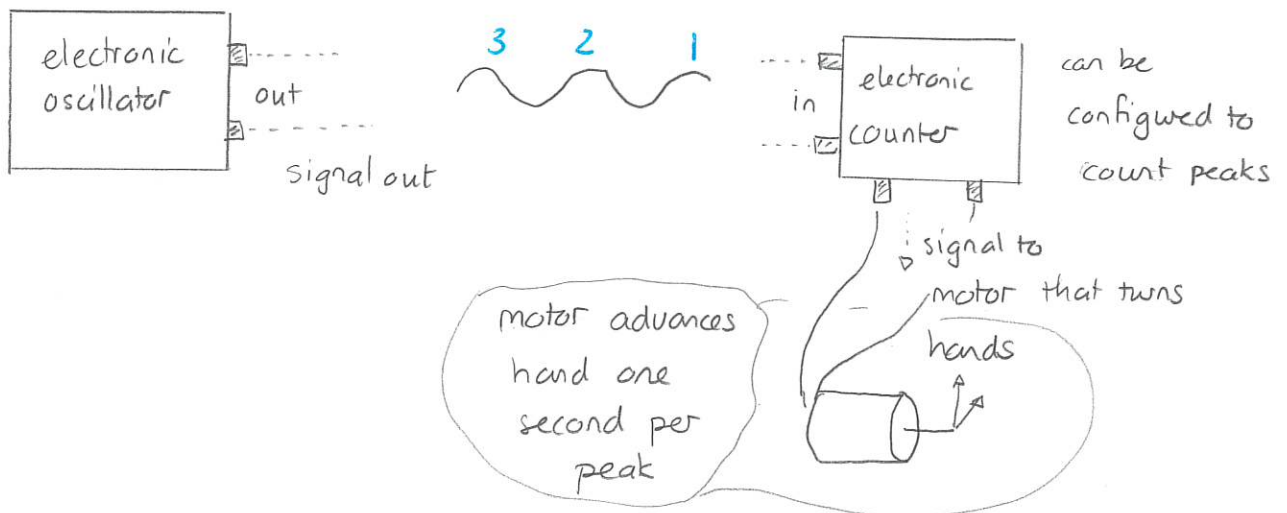 electronic
oscillator
out
signal out
3 2 1
in
electronic
counter
can be
configured to
count peaks
signal to
motor that turns
hands
motor advances
hand one
second per
peak